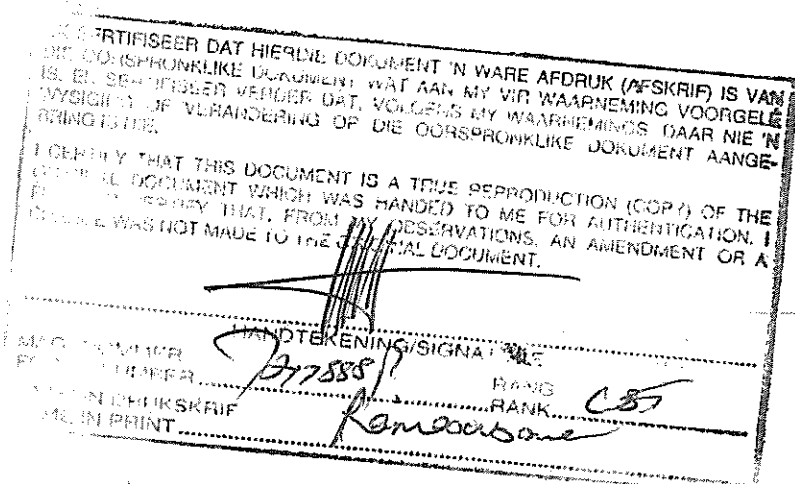 SERTIFISEER DAT HIERDIE DOKUMENT 'N WARE AFDRUK (AFSKRIF) IS VAN
DIE OORSPRONKLIKE DOKUMENT WAT AAN MY VIR WAARNEMING VOORGELÊ
IS. EK SERTIFISEER VERDER DAT, VOLGENS MY WAARNEMINGS DAAR NIE 'N
WYSIGING OF VERANDERING OP DIE OORSPRONKLIKE DOKUMENT AANGE-
BRING IS NIE.
I CERTIFY THAT THIS DOCUMENT IS A TRUE REPRODUCTION (COPY) OF THE
ORIGINAL DOCUMENT WHICH WAS HANDED TO ME FOR AUTHENTICATION. I
CERTIFY THAT, FROM MY OBSERVATIONS, AN AMENDMENT OR A
CHANGE WAS NOT MADE TO THE ORIGINAL DOCUMENT.
HANDTEKENING/SIGNATURE
MAGNOMMER RANG
NUMBER RANK CST
IN DRUKSKRIF
IN PRINT